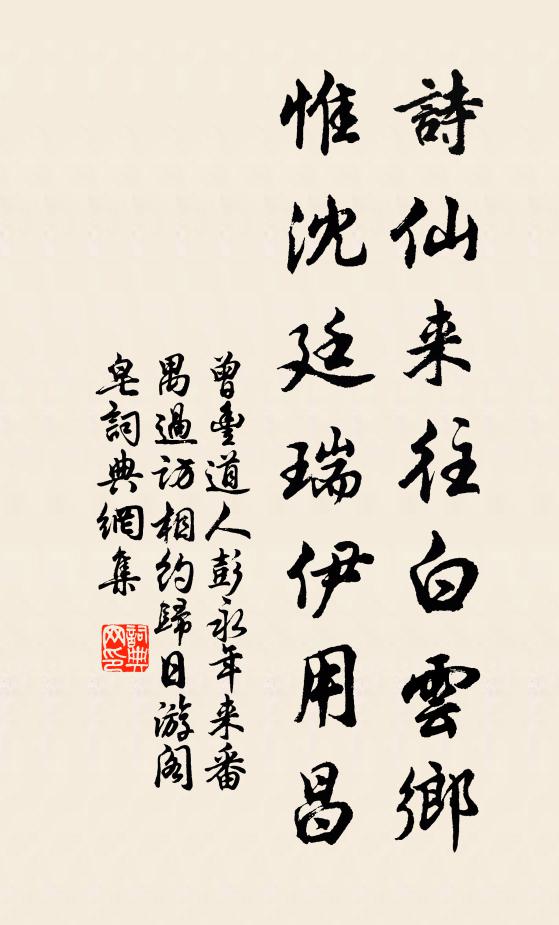 詩仙来往白雲鄉
惟沈廷瑞伊用昌
曾豐道人彭永年来番
禺過訪相約歸日游閣
皂詞典網集
詞典网印